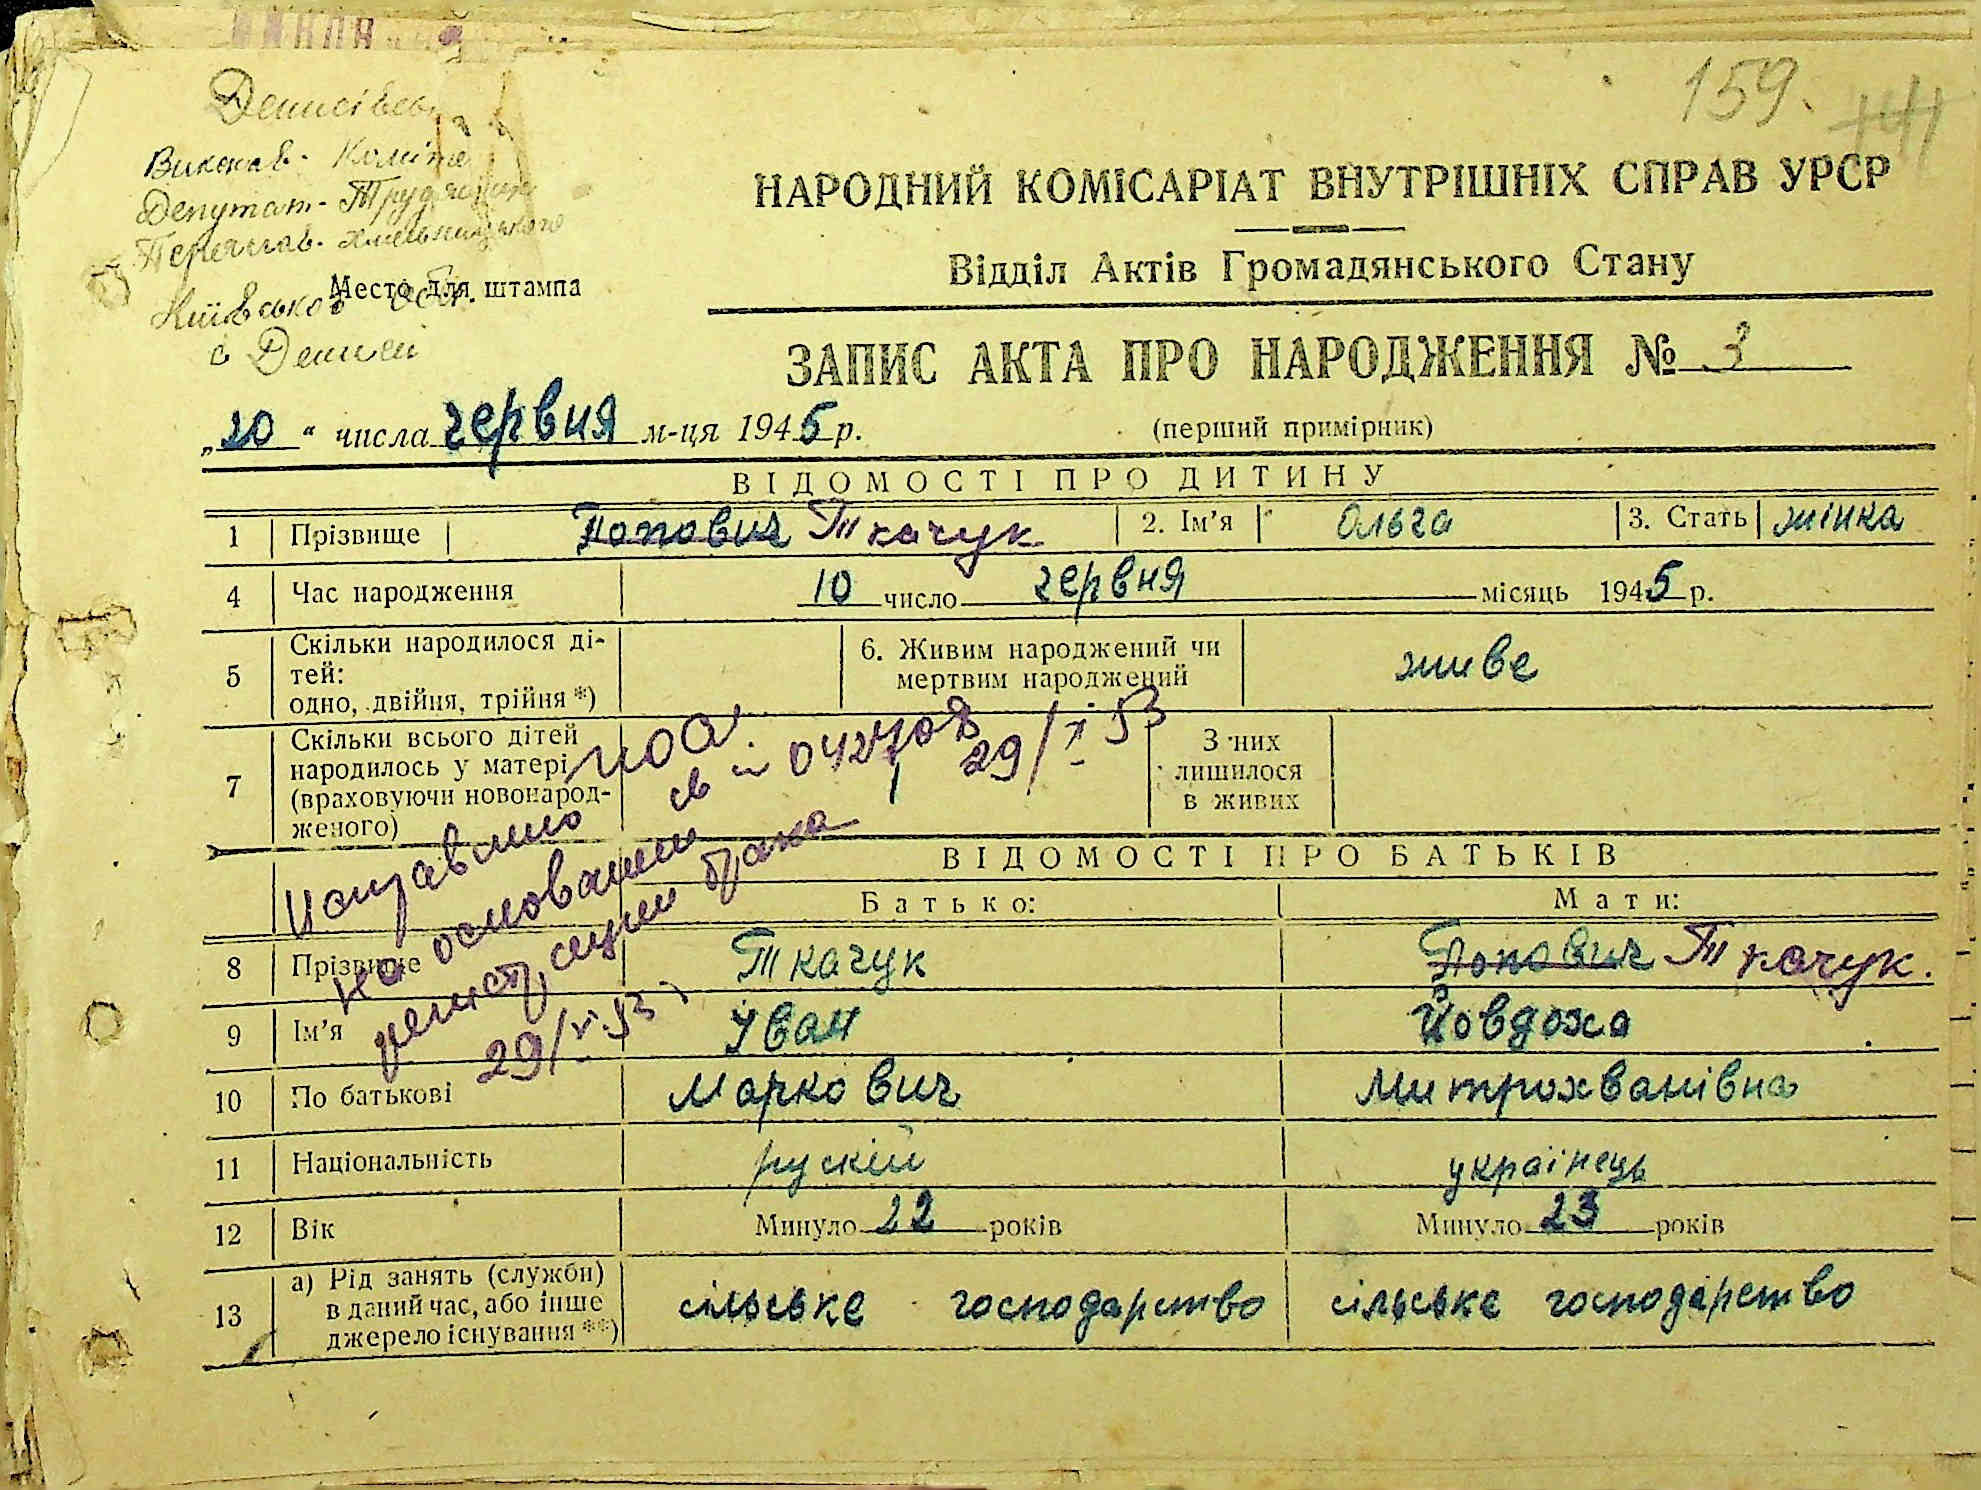 159.
Денисівськ
Виконав. Коміте
Депутат. Трудящих
Переяслав. Хмельницького
Місто для штампа
Київської обл.
с Дениси
НАРОДНИЙ КОМІСАРІАТ ВНУТРІШНІХ СПРАВ УРСР
Відділ Актів Громадянського Стану
ЗАПИС АКТА ПРО НАРОДЖЕННЯ № 3
„20“ числа червня м-ця 1945 р. (перший примірник)
ВІДОМОСТІ ПРО ДИТИНУ
1 Прізвище Попович Ткачук 2. Ім’я Ольга 3. Стать жінка
4 Час народження 10 число червня місяць 1945 р.
5 Скільки народилося ді-
тей:
одно, двійня, трійня *) 6. Живим народжений чи
мертвим народжений живе
7 Скільки всього дітей
народилось у матері
(враховуючи новонарод-
женого) З них
лишилося
в живих
Исправлено
на основании св 042708 29/X 53
регистрации брака
29/X.53
ВІДОМОСТІ ПРО БАТЬКІВ
Батько: Мати:
8 Прізвище Ткачук Попович Ткачук.
9 Ім’я Іван Йовдоха
10 По батькові Маркович Митрохванівна
11 Національність рускій українець
12 Вік Минуло 22 років Минуло 23 років
13 а) Рід занять (служби)
в даний час, або інше
джерело існування **) сільське господарство сільське господарство